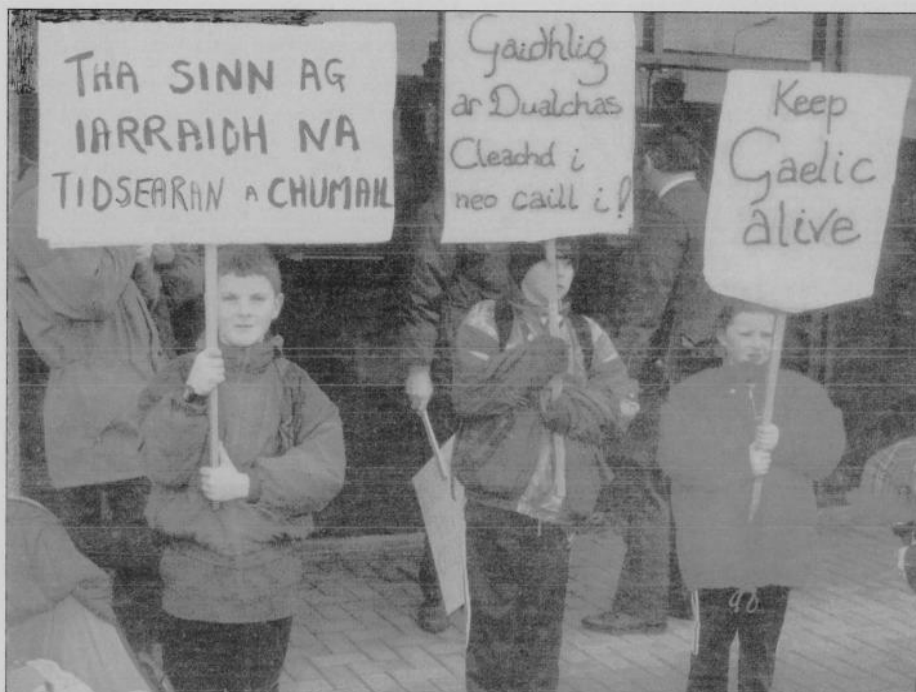 THA SINN AG
IARRAIDH NA
TIDSEARAN A CHUMAIL
Gaidhlig
ar Dualchas
Cleachd i
neo caill i!
Keep
Gaelic
alive